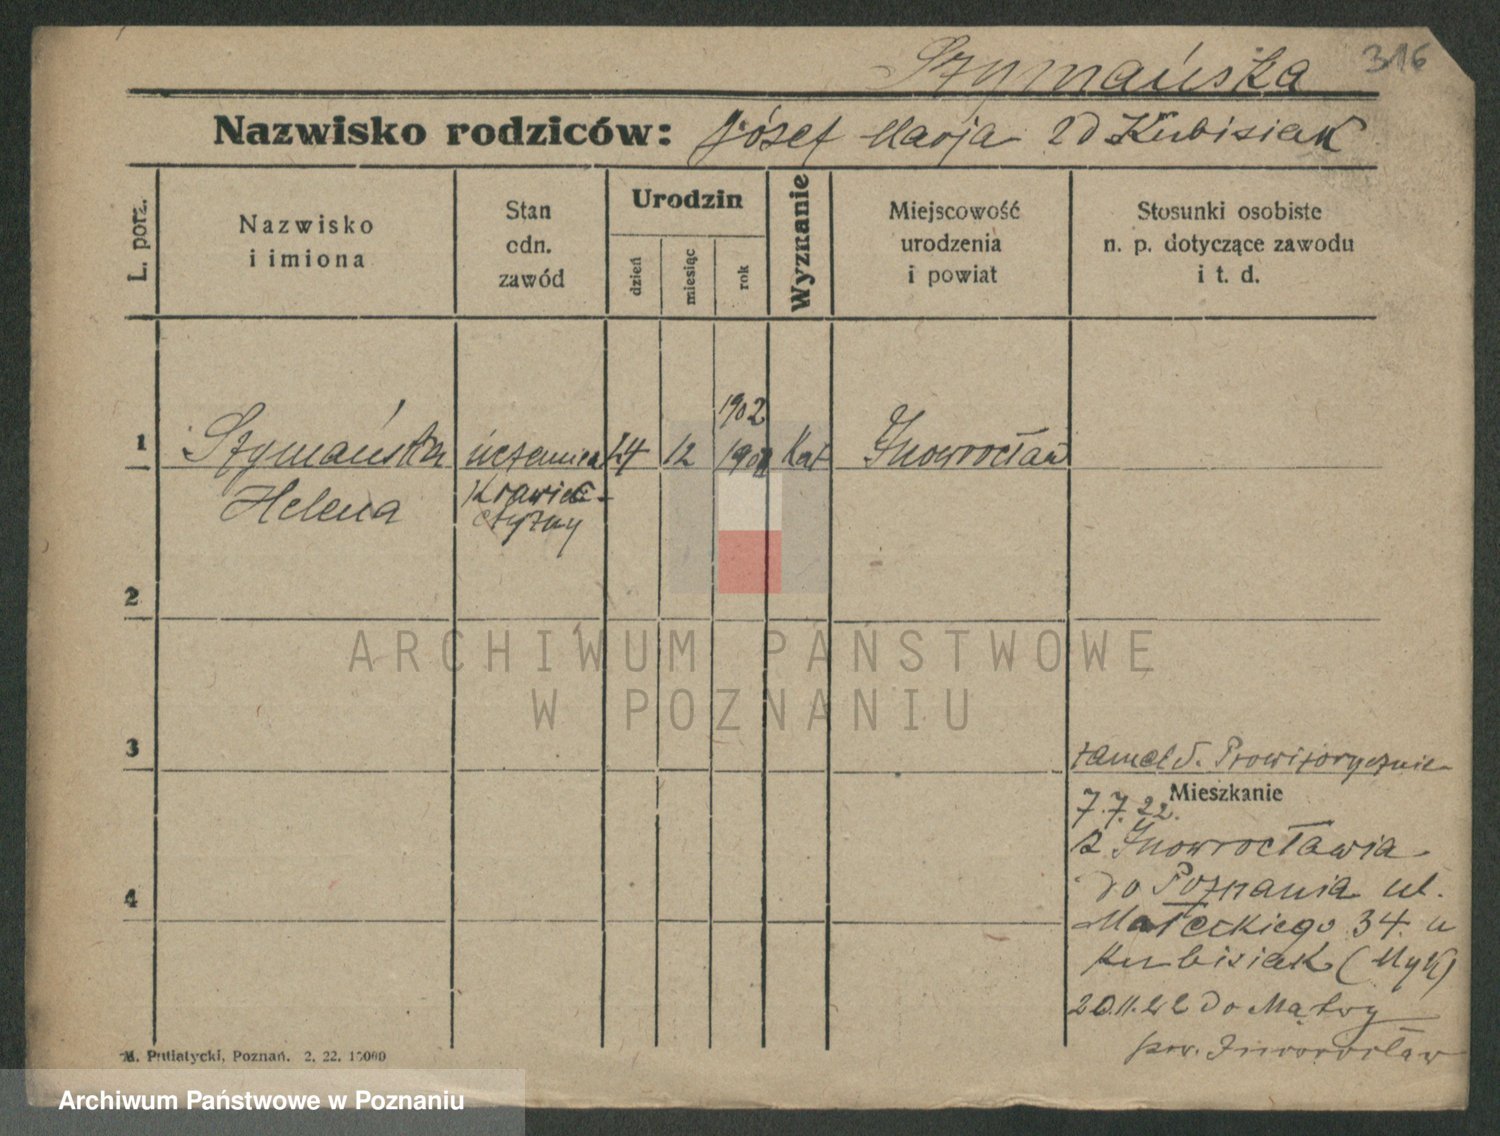 316
Szymańska
Nazwisko rodziców: Józef Marja zd Kubisiak
L. porz.
Nazwisko
i imiona
Stan
odn.
zawód
Urodzin
dzień
miesiąc
rok
Wyznanie
Miejscowość
urodzenia
i powiat
Stosunki osobiste
n. p. dotyczące zawodu
i t. d.
1902
1 Szymańska uczennica 24 12 1902 Kat Inowrocław
Helena
krawie-
czyzny
2
ARCHIWUM PAŃSTWOWE
W POZNANIU
3
zamel d. Prowizorycznie
Mieszkanie
7.7.22.
z Inowrocławia
do Poznania ul.
4
Małeckiego 34. u
Kubisiak (Myk)
20.11.22 do Mątwy
pow. Inowrocław
M. Putiatycki, Poznań. 2. 22. 15000
Archiwum Państwowe w Poznaniu